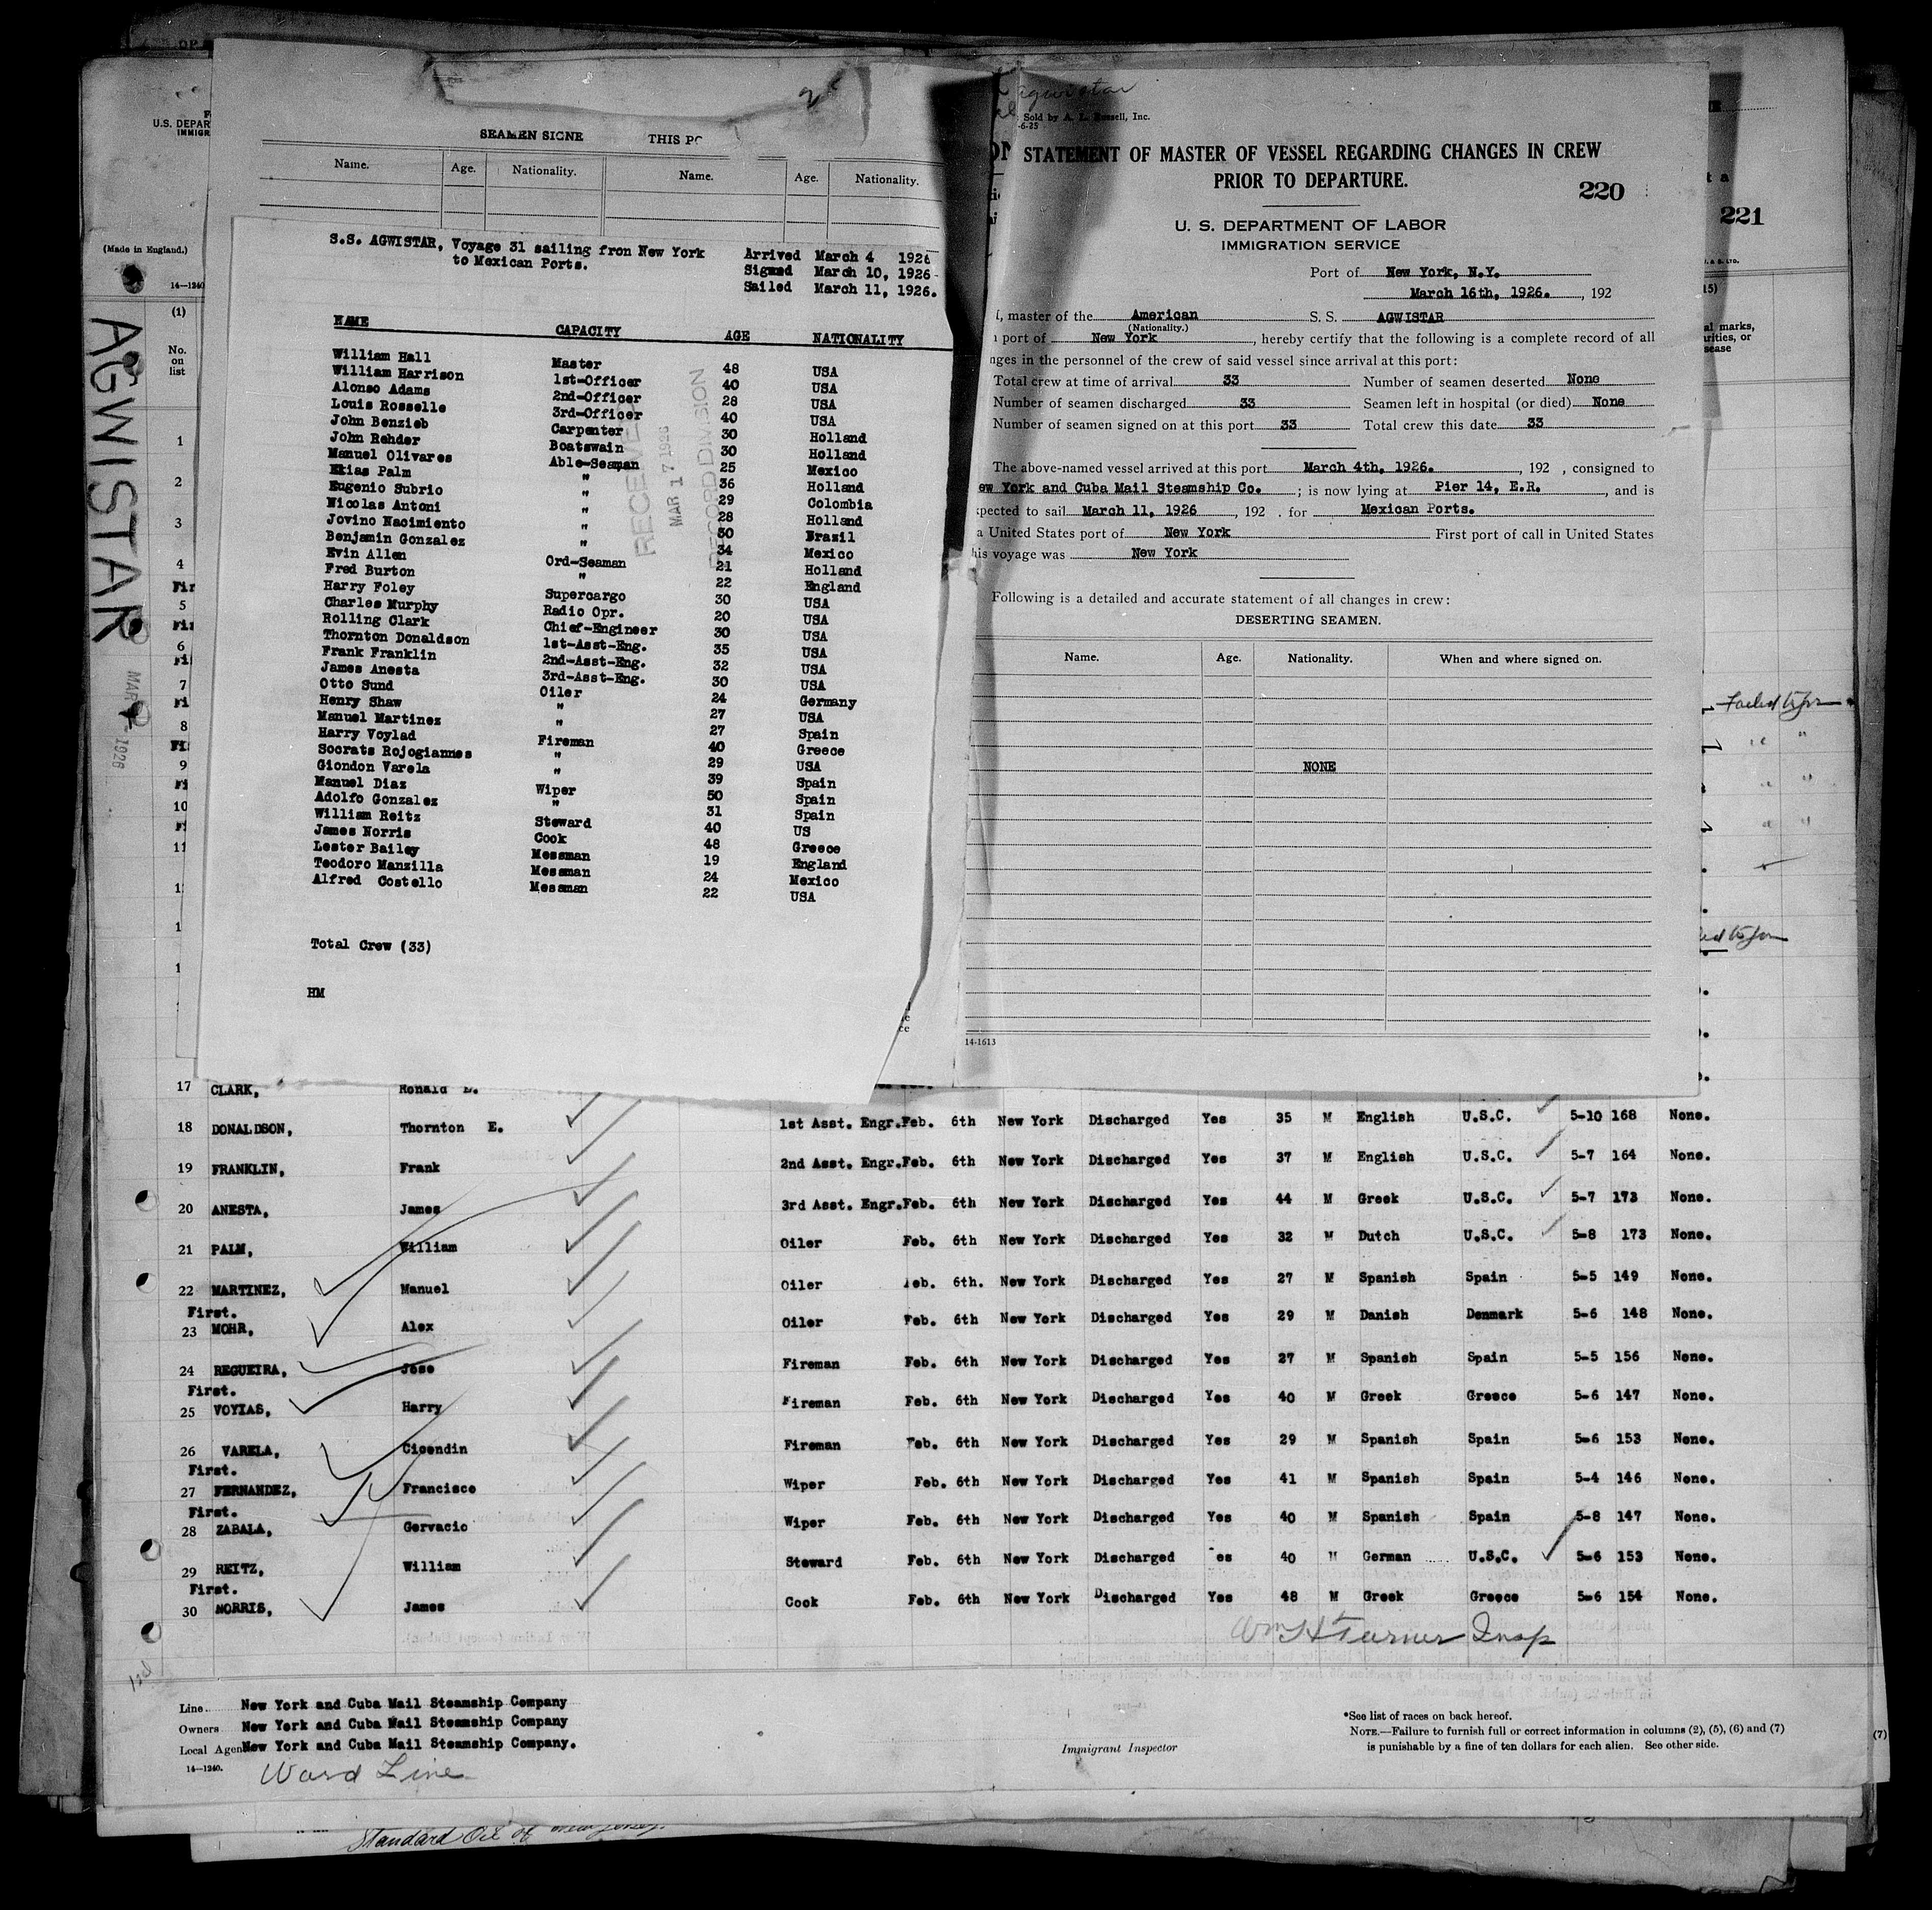 U.S. DEPAR
IMMIGR
(Made in England.)
14—1240
(1)
No.
on
list
AGWISTAR
MAR
1926
1
2
3
4
5
6
7
8
9
10
11
SEAMEN SIGNE THIS PO
Name. Age. Nationality. Name. Age. Nationality.
S.S. AGWISTAR, Voyage 31 sailing from New York
to Mexican Ports.
Arrived March 4 1926
Signed March 10, 1926
Sailed March 11, 1926.
NAME CAPACITY AGE NATIONALITY
William Hall Master 48 USA
William Harrison 1st-Officer 40 USA
Alonso Adams 2nd-Officer 28 USA
Louis Rosselle 3rd-Officer 40 USA
John Benzieb Carpenter 30 Holland
John Rehder Boatswain 30 Holland
Manuel Olivares Able-Seaman 25 Mexico
Elias Palm " 36 Holland
Eugenio Subrio " 29 Colombia
Nicolas Antoni " 28 Holland
Jovino Nacimiento " 30 Brazil
Benjamin Gonzalez " 34 Mexico
Evin Allen Ord-Seaman 21 Holland
Fred Burton " 22 England
Harry Foley Supercargo 30 USA
Charles Murphy Radio Opr. 20 USA
Rolling Clark Chief-Engineer 30 USA
Thornton Donaldson 1st-Asst-Eng. 35 USA
Frank Franklin 2nd-Asst-Eng. 32 USA
James Anesta 3rd-Asst-Eng. 30 USA
Otto Sund Oiler 24 Germany
Henry Shaw " 27 USA
Manuel Martinez " 27 Spain
Harry Voylad Fireman 40 Greece
Socrats Rojogiannes " 29 USA
Giondon Varela " 39 Spain
Manuel Diaz Wiper 50 Spain
Adolfo Gonzalez " 31 Spain
William Reitz Steward 40 US
James Norris Cook 48 Greece
Lester Bailey Messman 19 England
Teodoro Manzilla Messman 24 Mexico
Alfred Costello Messman 22 USA
Total Crew (33)
HM
RECEIVED
MAR 17 1926
RECORD DIVISION
Agwistar
Sold by A. L. Russell, Inc.
-6-25
STATEMENT OF MASTER OF VESSEL REGARDING CHANGES IN CREW
PRIOR TO DEPARTURE.
220
221
U. S. DEPARTMENT OF LABOR
IMMIGRATION SERVICE
Port of New York, N.Y.
March 16th, 1926. , 192
, master of the American S. S. AGWISTAR
(Nationality.)
port of New York , hereby certify that the following is a complete record of all
nges in the personnel of the crew of said vessel since arrival at this port:
Total crew at time of arrival 33 Number of seamen deserted None
Number of seamen discharged 33 Seamen left in hospital (or died) None
Number of seamen signed on at this port 33 Total crew this date 33
The above-named vessel arrived at this port March 4th, 1926. , 192 , consigned to
ew York and Cuba Mail Steamship Co. ; is now lying at Pier 14, E.R. , and is
pected to sail March 11, 1926 , 192 . for Mexican Ports.
a United States port of New York First port of call in United States
his voyage was New York
Following is a detailed and accurate statement of all changes in crew:
DESERTING SEAMEN.
Name. Age. Nationality. When and where signed on.
NONE
14-1613
17 CLARK, Ronald
18 DONALDSON, Thornton E. 1st Asst. Engr. Feb. 6th New York Discharged Yes 35 M English U.S.C. 5-10 168 None.
19 FRANKLIN, Frank 2nd Asst. Engr. Feb. 6th New York Discharged Yes 37 M English U.S.C. 5-7 164 None.
20 ANESTA, James 3rd Asst. Engr. Feb. 6th New York Discharged Yes 44 M Greek U.S.C. 5-7 173 None.
21 PALM, William Oiler Feb. 6th New York Discharged Yes 32 M Dutch U.S.C. 5-8 173 None.
22 MARTINEZ, Manuel Oiler Feb. 6th. New York Discharged Yes 27 M Spanish Spain 5-5 149 None.
First.
23 MOHR, Alex Oiler Feb. 6th New York Discharged Yes 29 M Danish Denmark 5-6 148 None.
24 REGUEIRA, Jose Fireman Feb. 6th New York Discharged Yes 27 M Spanish Spain 5-5 156 None.
First.
25 VOYIAS, Harry Fireman Feb. 6th New York Discharged Yes 40 M Greek Greece 5-6 147 None.
26 VARELA, Cicendin Fireman Feb. 6th New York Discharged Yes 29 M Spanish Spain 5-6 153 None.
First.
27 FERNANDEZ, Francisco Wiper Feb. 6th New York Discharged Yes 41 M Spanish Spain 5-4 146 None.
First.
28 ZABALA, Gervacio Wiper Feb. 6th New York Discharged Yes 40 M Spanish Spain 5-8 147 None.
29 REITZ, William Steward Feb. 6th New York Discharged es 40 M German U.S.C. 5-6 153 None.
First.
30 MORRIS, James Cook Feb. 6th New York Discharged Yes 48 M Greek Greece 5-6 154 None.
Wm H Turner Insp
Line New York and Cuba Mail Steamship Company
Owners New York and Cuba Mail Steamship Company
Local Agen New York and Cuba Mail Steamship Company.
14—1240.
Ward Line
Immigrant Inspector
*See list of races on back hereof.
NOTE.—Failure to furnish full or correct information in columns (2), (5), (6) and (7)
is punishable by a fine of ten dollars for each alien. See other side.
(7)
Standard Oil of New Jersey.